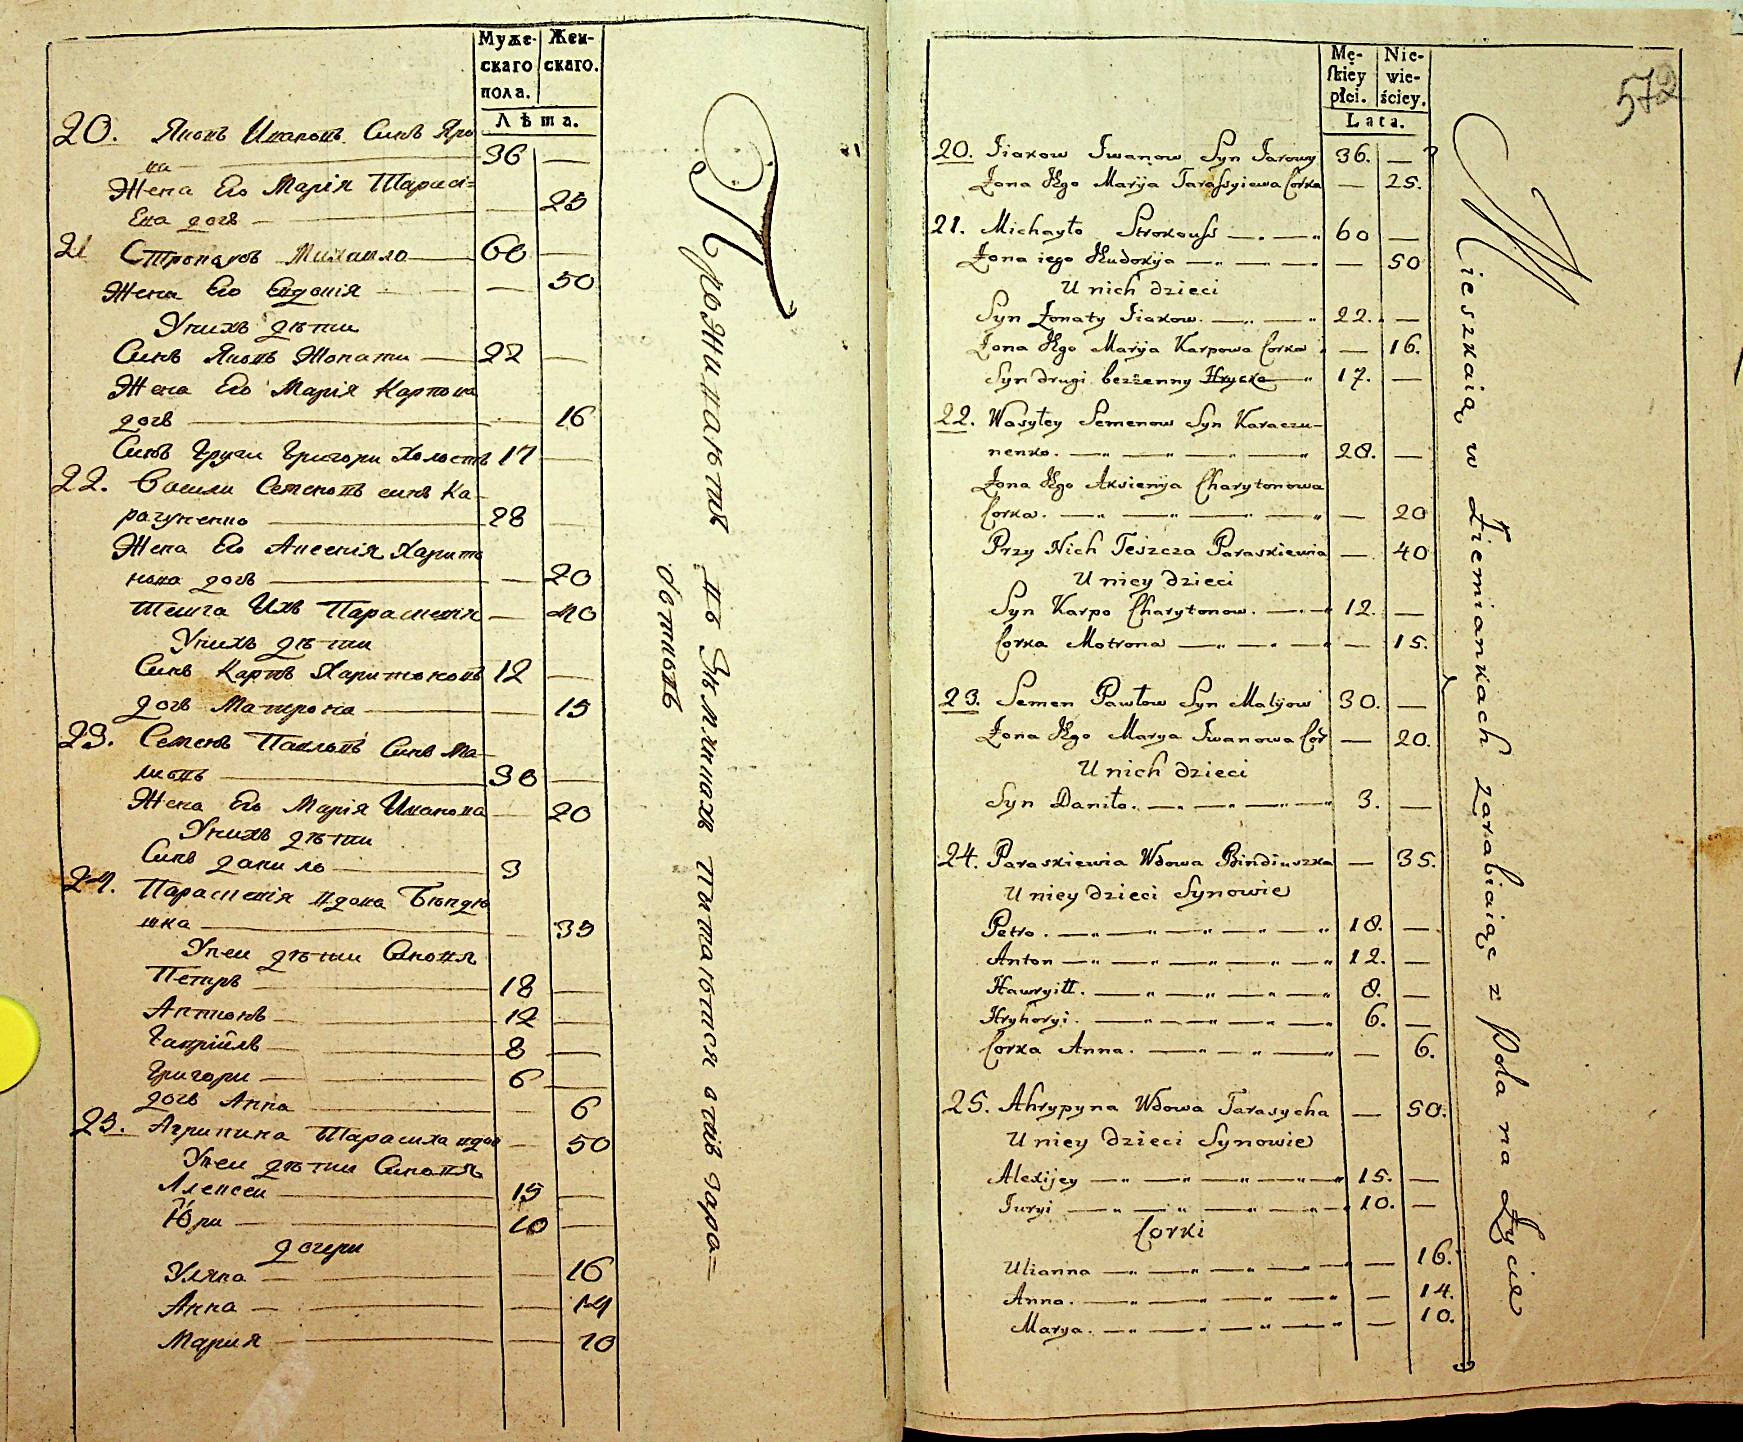 Муже-
скаго
пола.
Жен-
скаго.
Лѣта.
20. Яковъ Ивановъ Синъ Яро
ва 36 —
Жена Его Марія Тарасі=
Ева дочь — 25
21 Строкаусъ Михаило 60 —
Жена Его Евдокія — 50
Унихъ дѣти
Синъ Яковъ Жонати 22 —
Жена Его Марія Карпова
дочь — 16
Синъ други Григори Холостъ 17 —
22. Васили Семеновъ синъ Ка-
рачуненко 28 —
Жена Его Аксенія Харито
нова дочь — 20
Тешга Ихъ Параскевія — 40
Унихъ дѣти
Синъ Карпъ Харитоновъ 12 —
дочь Матрона — 15
23. Семенъ Павловъ Синъ Ма-
лиовъ 30 —
Жена Его Марія Иванова — 20
Унихъ дѣти
Синъ данило 3
24. Параскевія вдова Биндю
шка — 35
Унеи дѣти Синовя
Петръ 18 —
Антонъ 12 —
Гавріилъ 8 —
Григори 6 —
дочь Анна — 6
25. Агрипина Тарасиха вдов — 50
Унеи дѣти Синовя
Алексеи 15 —
Юри 10 —
дочери
Уляна — 16
Анна — 14
Мария — 10
Проживаютъ въ Землянкахъ питаются отъ заро=
ботковъ
572
Mę-
skiey
płci.
Nie-
wie-
ściey.
Lata.
20. Jiakow Jwanow Syn Jarowy 36. —
Żona Jego Maryja Tarassyiewa Corka — 25.
21. Michayło Strokouss 60 —
Żona iego Jewdokija — 50
U nich dzieci
Syn Żonaty Jiakow. 22. —
Żona Jego Maryja Karpowa Corka — 16.
Syn drugi bezżenny Hrycko 17. —
22. Wasyley Semenow Syn Karaczu-
nenko. 28. —
Żona Jego Aksienija Charytonowa
Corka. — 20
Przy Nich Teszcza Paraskiewia — 40
U niey dzieci
Syn Karpo Charytonow. 12. —
Corka Motrona — 15.
23. Semen Pawłow Syn Malijow 30. —
Żona Jego Marya Jwanowa Cor — 20.
U nich dzieci
Syn Daniło. 3. —
24. Paraskiewia Wdowa Bindiuszka — 35.
U niey dzieci Synowie
Petro. 18. —
Anton 12. —
Hawryiłł. 8. —
Hryhoryi. 6. —
Corka Anna. — 6.
25. Ahrypyna Wdowa Tarasycha — 50.
U niey dzieci Synowie
Alexijey 15. —
Juryi 10. —
Corki
Ulianna — 16.
Anna. — 14.
Marya. — 10.
Mieszkaią w Ziemiankach zarabiaiąc z Pola na Życie